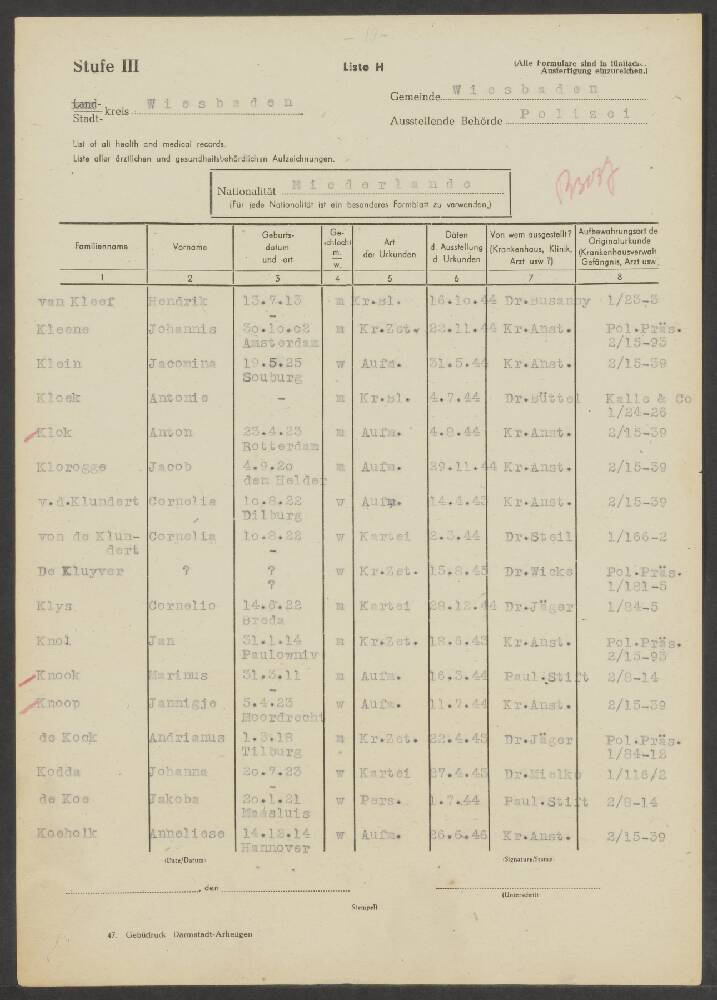 Stufe III
Liste H
(Alle Formulare sind in fünffach.
Ausfertigung einzureichen.)
Land-
Stadt- kreis Wiesbaden
Gemeinde Wiesbaden
Ausstellende Behörde Polizei
List of all health and medical records.
Liste aller ärztlichen und gesundheitsbehördlichen Aufzeichnungen.
Nationalität Niederlande
(Für jede Nationalität ist ein besonderes Formblatt zu verwenden.)
Familienname Vorname Geburts-datum und -ort Ge-schlecht m. w. Art der Urkunden Daten d. Ausstellung d. Urkunden Von wem ausgestellt? (Krankenhaus, Klinik, Arzt usw ?) Aufbewahrungsort de Originalurkunde (Krankenhausverwalt Gefängnis, Arzt usw
1 2 3 4 5 6 7 8
van Kleef Hendrik 13.7.13 m Kr.Bl. 16.10.44 Dr.Busanny 1/23-3
-
Kleene Johannis 30.10.02 m Kr.Zet. 22.11.44 Kr.Anst. Pol.Präs.
Amsterdam 2/15-93
Klein Jacomina 19.5.25 w Aufn. 31.5.44 Kr.Anst. 2/15-39
Souburg
Kloek Antonie - m Kr.Bl. 4.7.44 Dr.Büttel Kalle & Co
1/24-26
Klok Anton 23.4.23 m Aufn. 4.8.44 Kr.Anst. 2/15-39
Rotterdam
Klorogge Jacob 4.9.20 m Aufn. 29.11.44 Kr.Anst. 2/15-39
den Helder
v.d.Klundert Cornelia 10.8.22 w Aufn. 14.4.43 Kr.Anst. 2/15-39
Dilburg
von de Klun- Cornelia 10.8.22 w Kartei 2.3.44 Dr.Steil 1/166-2
dert -
De Kluyver ? ? w Kr.Zet. 15.8.45 Dr.Wicke Pol.Präs.
? 1/181-5
Klys Cornelio 14.8.22 m Kartei 28.12.44 Dr.Jäger 1/84-5
Breda
Knol Jan 31.1.14 m Kr.Zet. 18.6.43 Kr.Anst. Pol.Präs.
Paulowniv 2/15-93
Knook Marinus 31.3.11 m Aufn. 16.3.44 Paul.Stift 2/8-14
-
Knoop Jannigje 5.4.23 w Aufn. 11.7.44 Kr.Anst. 2/15-39
Moordrecht
de Kock Andrianus 1.3.18 m Kr.Zet. 22.4.43 Dr.Jäger Pol.Präs.
Tilburg 1/84-12
Kodda Johanna 20.7.23 w Kartei 27.4.45 Dr.Mielke 1/116/2
de Koe Jakoba 20.1.21 w Pers. 1.7.44 Paul.Stift 2/8-14
Maasluis
Koeholk Anneliese 14.12.14 w Aufn. 26.6.46 Kr.Anst. 2/15-39
Hannover
(Date/Datum)
(Signature/Status)
, den
(Unterschrift)
Stempel)
47. Gebüdruck Darmstadt-Arheilgen